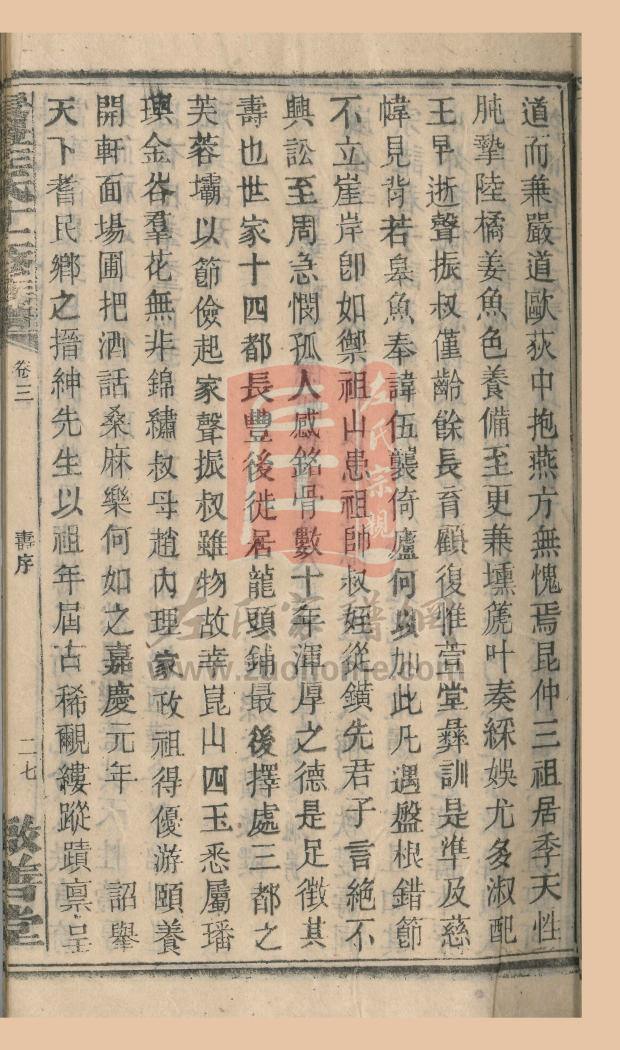 道而兼嚴道歐荻中抱燕方無愧焉昆仲三祖居季天性
肫摯陸橘姜魚色養備至更兼壎箎叶奏綵娛尤多淑配
王早逝聲振叔僅齡餘長育顧復惟萱堂彝訓是準及慈
幃見背若皋魚奉諱伍襲倚廬何以加此凡遇盤根錯節
不立崖岸卽如禦祖山患祖帥叔姪從鐄先君子言絶不
興訟至周急憫孤人感銘骨數十年渾厚之德是足徵其
壽也世家十四都長豐後徙居龍頭鋪最後擇處三都之
芙蓉壩以節儉起家聲振叔雖物故幸崑山四玉悉屬璠
璵金谷羣花無非錦繡叔母趙內理家政祖得優游頤養
開軒面場圃把酒話桑麻樂何如之嘉慶元年 詔舉
天下耆民鄉之搢紳先生以祖年屆古稀覼縷蹤蹟禀呈
卷三
壽序
二七
敬善堂
左氏宗親
左氏家譜網
www.zuohome.com